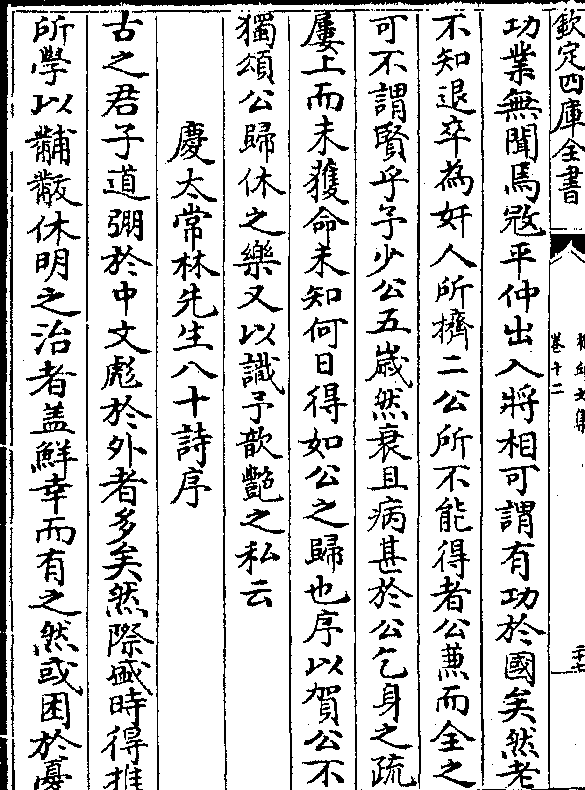 欽定四庫全書
卷十二
功業無聞焉寇平仲出入將相可謂有功於國矣然老
不知退卒為奸人所擠二公所不能得者公兼而全之
可不謂賢乎予少公五歲然衰且病甚於公乞身之疏
屢上而未獲命未知何日得如公之歸也序以賀公不
獨頌公歸休之樂又以識予歆艷之私云
慶太常林先生八十詩序
古之君子道弸於中文彪於外者多矣然際盛時得推
所學以黼黻休明之治者盖鮮幸而有之然或困於憂